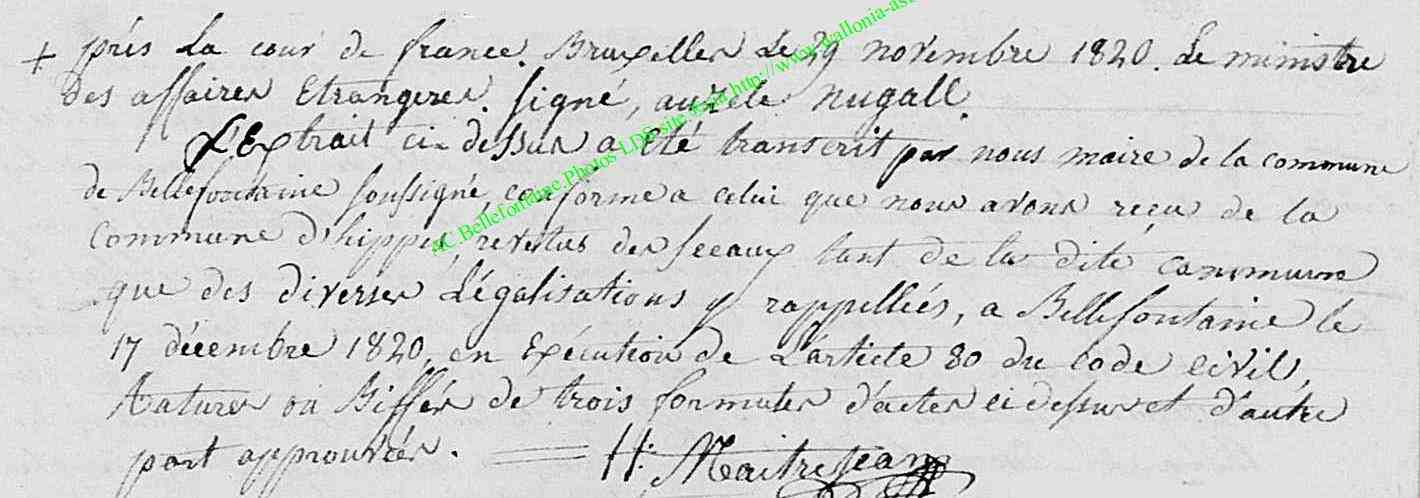 + près la cour de france. Bruxelles Le 29 novembre 1820. Le ministre
des affaires Etrangeres. signé, aurele Nugall.
L'Extrait ci-dessus a été transcrit par nous maire de la commune
de Bellefontaine soussigné, conforme a celui que nous avons reçu de la
Commune d'hippes, revetus des sceaux tant de la dite commune
que des diverses Légalisations y rappellées, a Bellefontaine le
17 décembre 1820, en Exécution de L'article 80 du code civil,
Ratures ou Biffés de trois formules d'actes ci dessus et d'autre
part approuvées. H: Maitrejean
AC Bellefontaine Photos LDS site http://www.wallonia-as